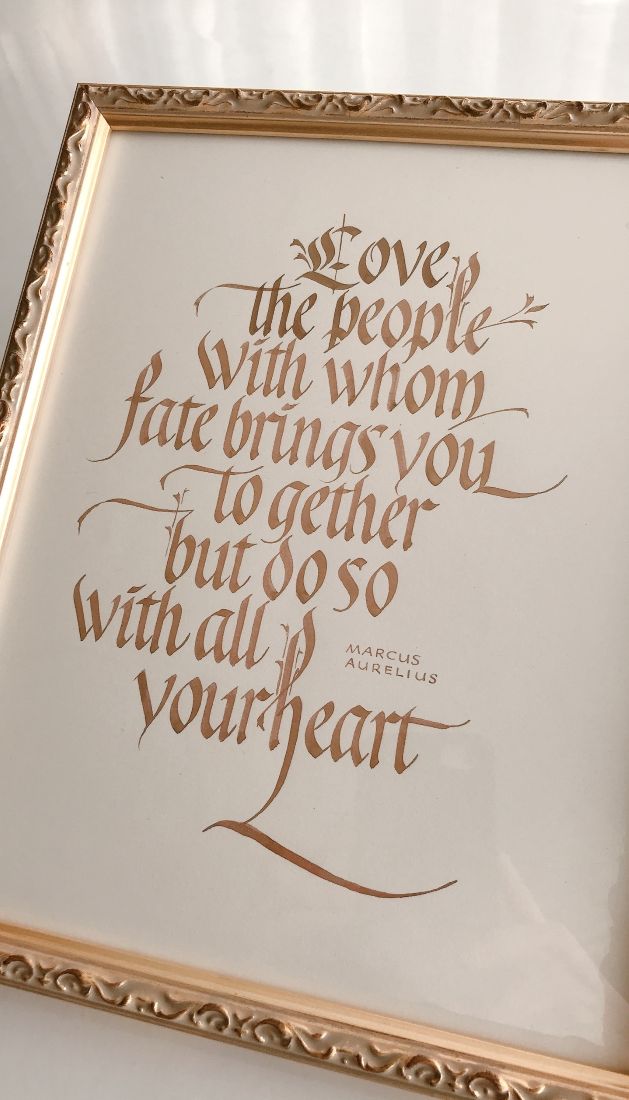 Love
the people
with whom
fate brings you
together
but do so
with all
your heart
MARCUS
AURELIUS